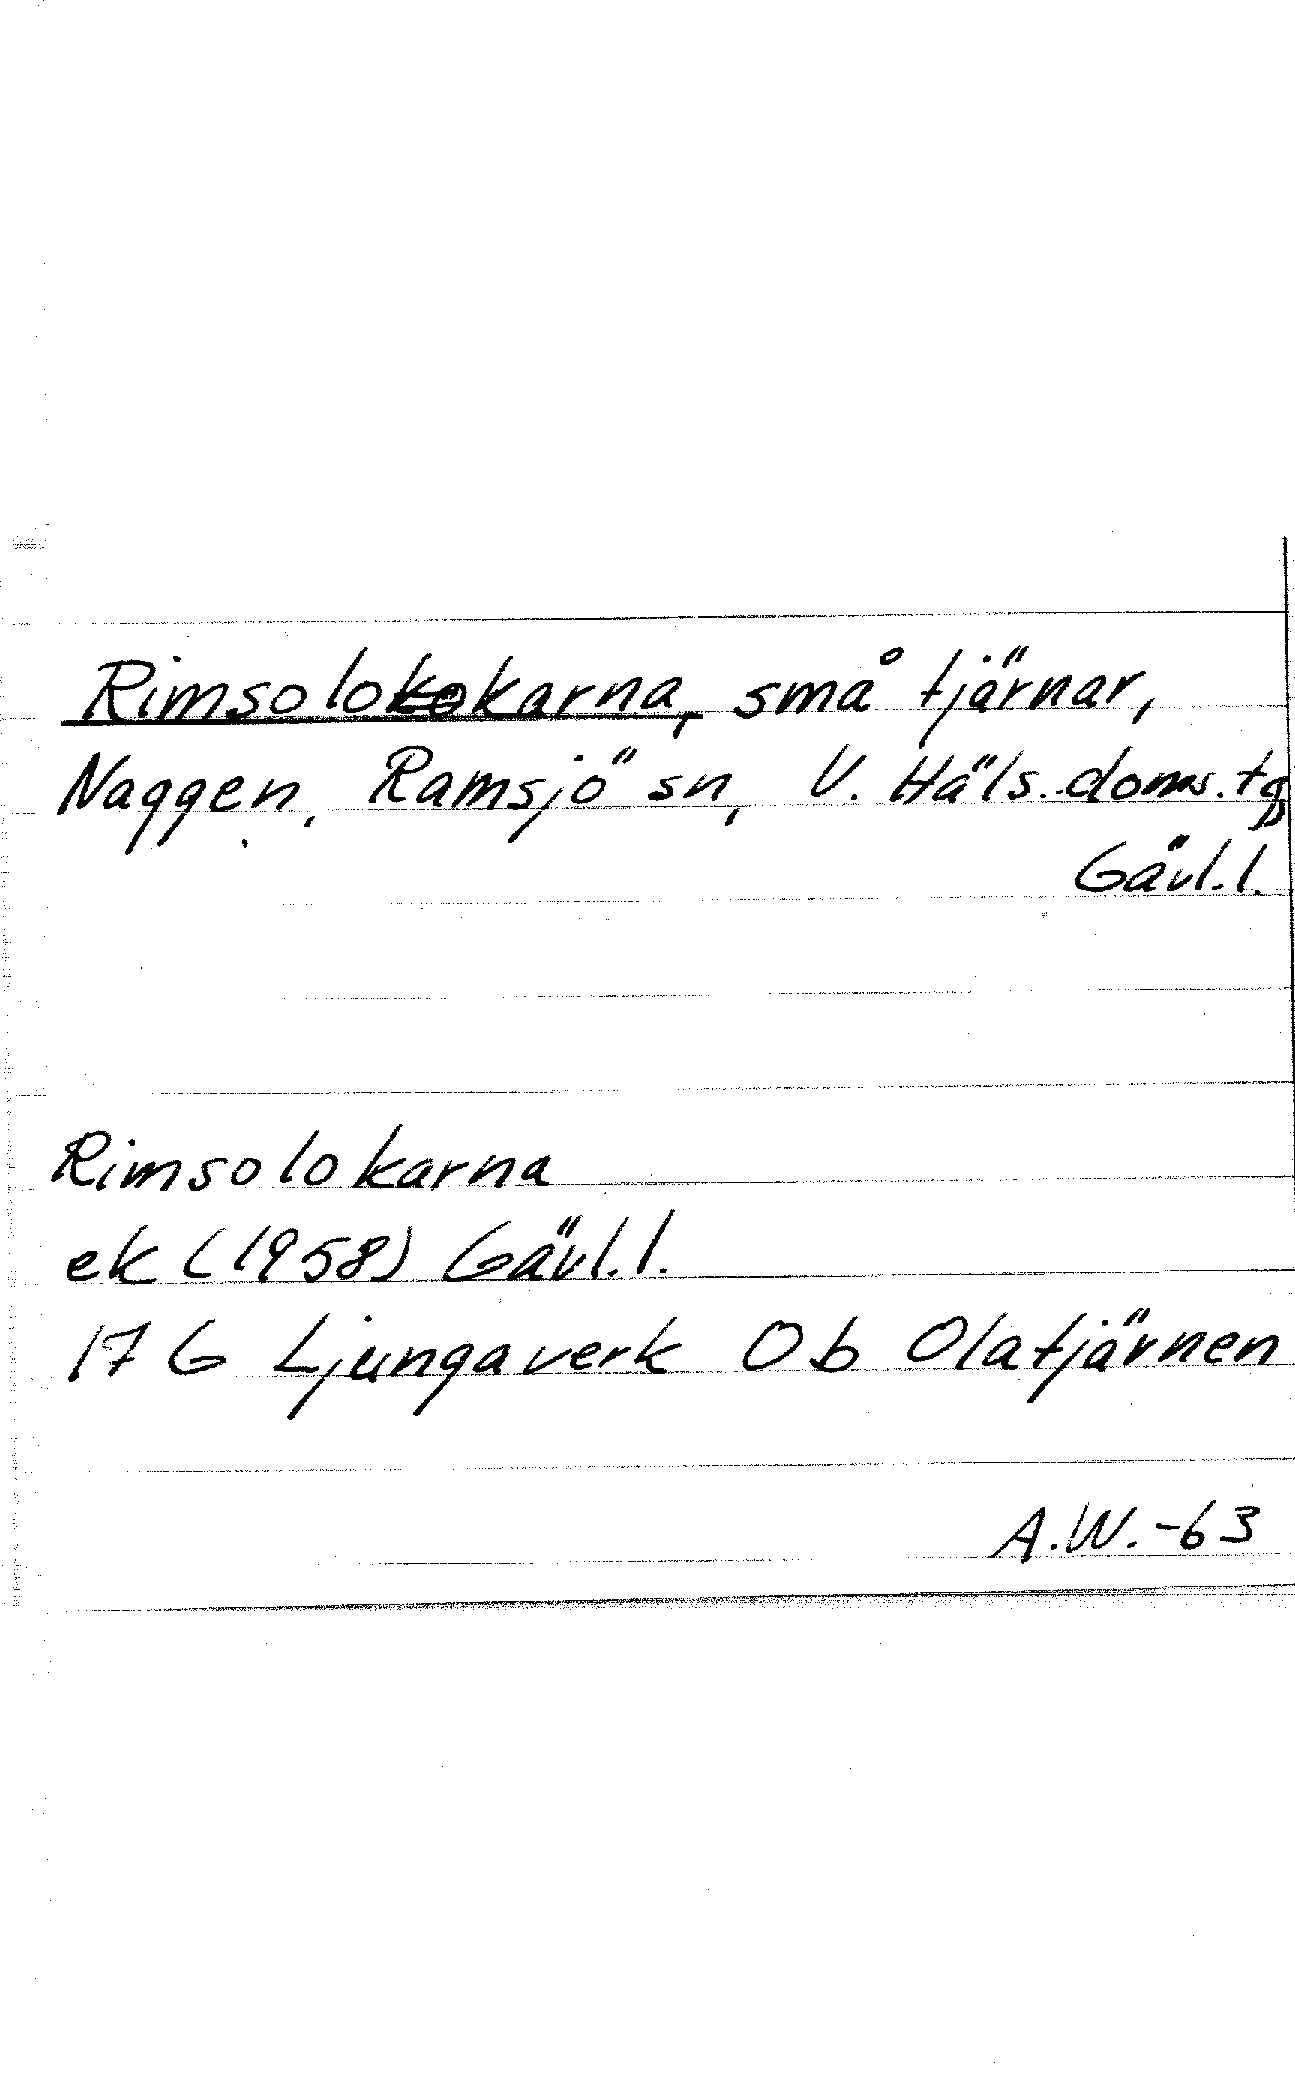 Rimsolokarna, små tjärnar,
Naggen, Ramsjö sn, V. Häls. doms. tg
Gävl. l.
Rimsolokarna
ek (1958) Gävl. l.
17 G Ljungaverk 0b Olatjärnen
A.W. -63